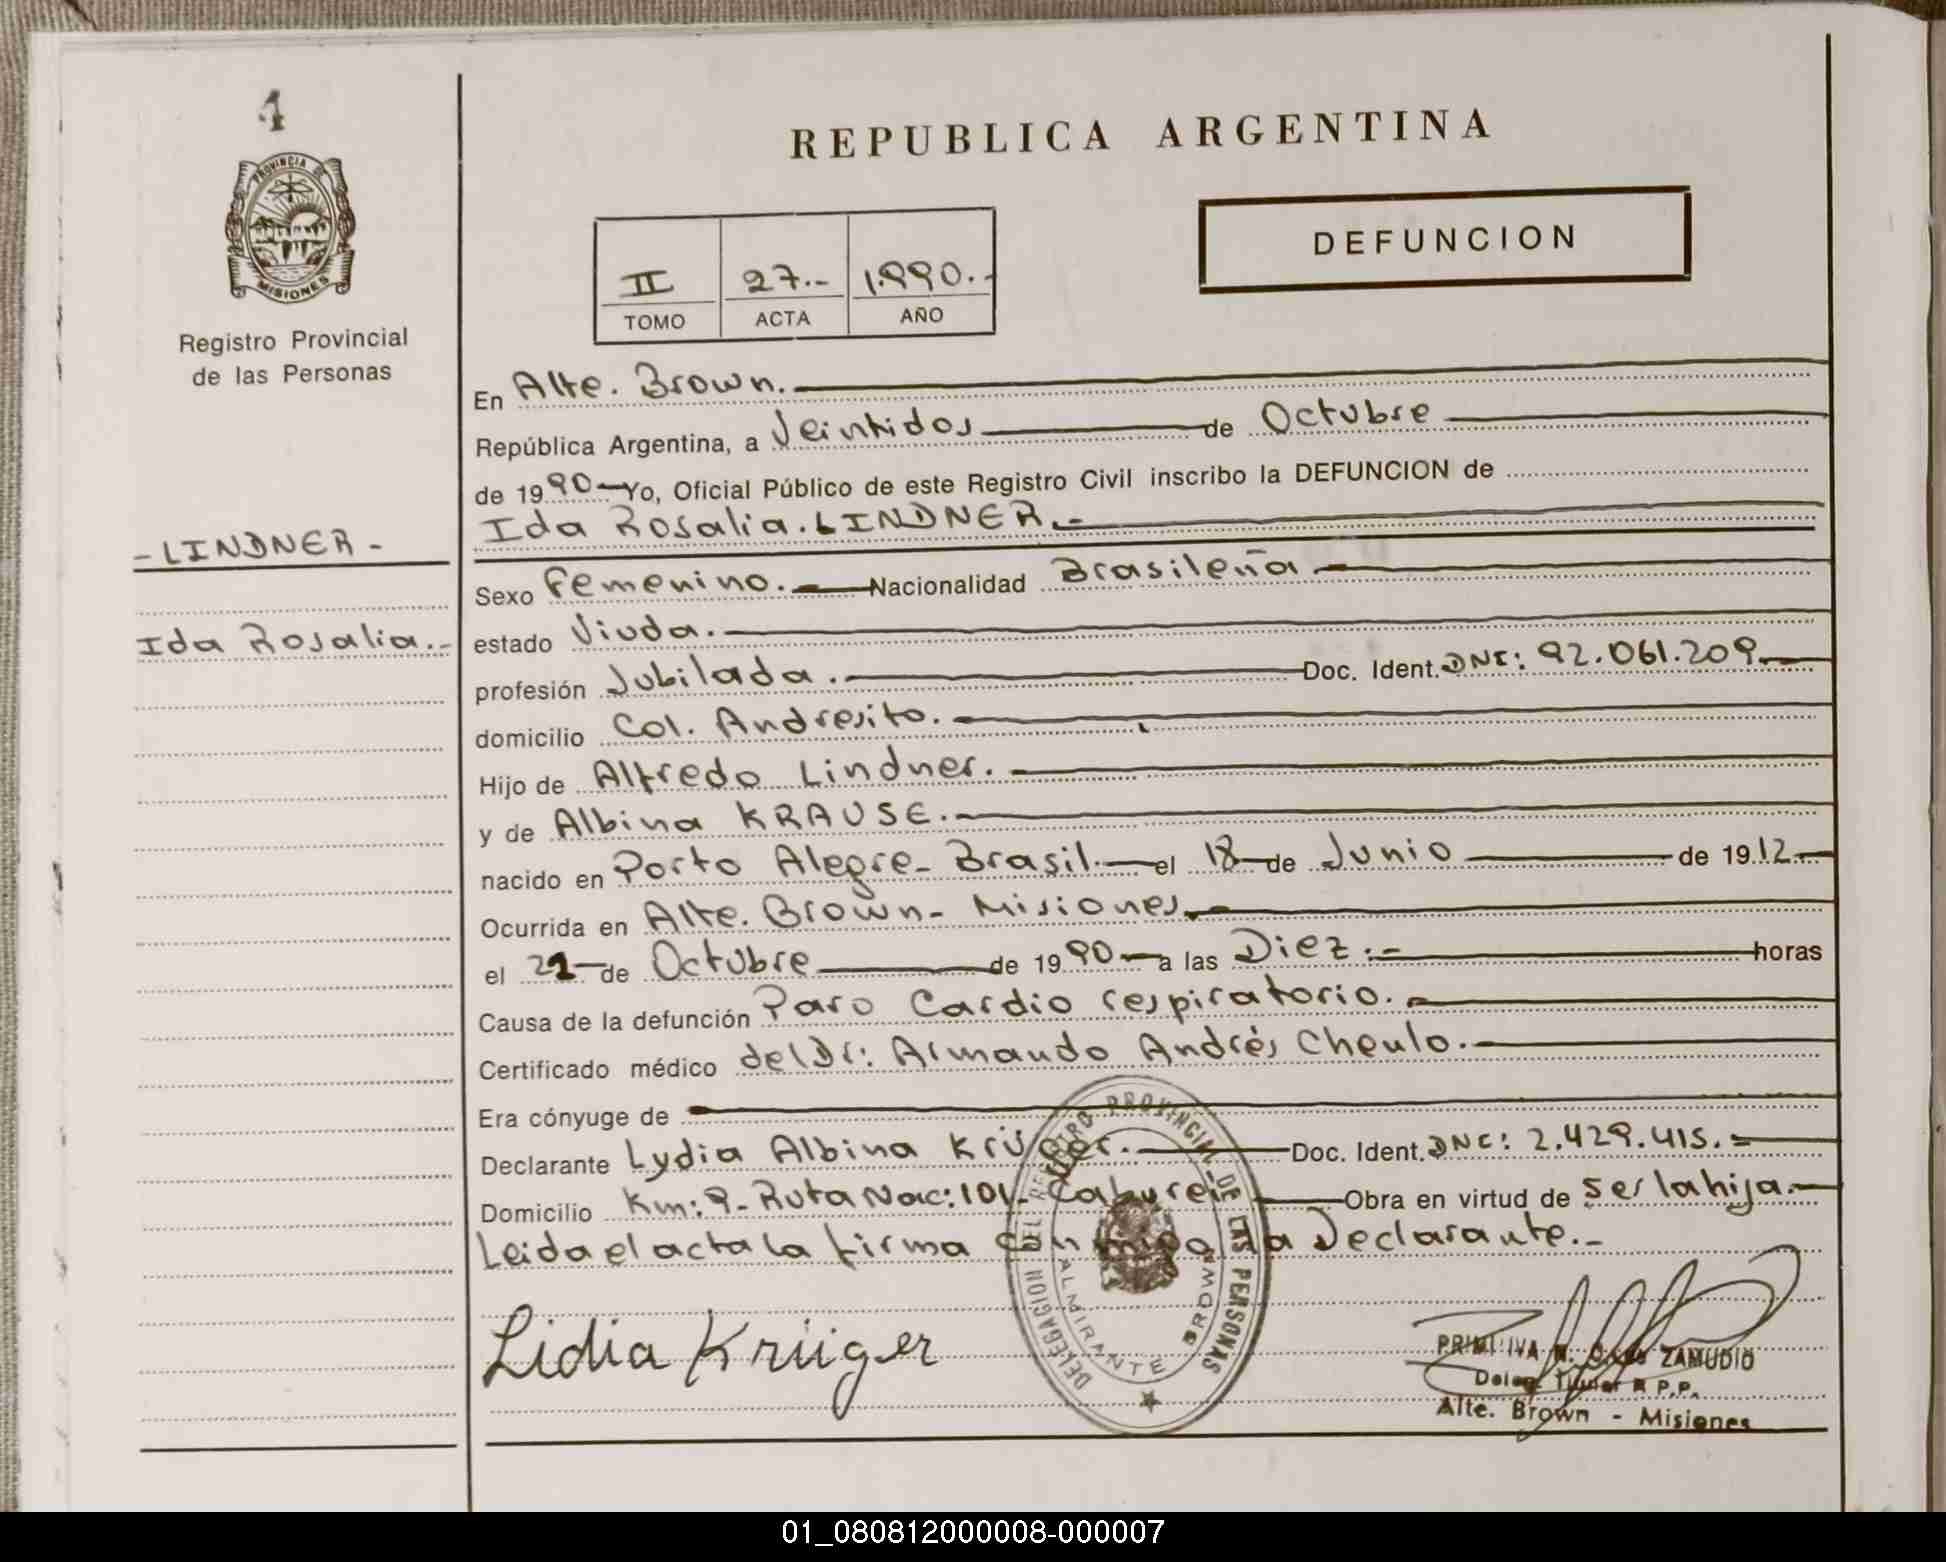 1
PROVINCIA DE
MISIONES
Registro Provincial
de las Personas
-LINDNER-
Ida Rosalia.-
REPUBLICA ARGENTINA
DEFUNCION
II 27.- 1.990.-
TOMO ACTA AÑO
En Alte. Brown.
República Argentina, a Veintidos de Octubre
de 1990 Yo, Oficial Público de este Registro Civil inscribo la DEFUNCION de
Ida Rosalia. LINDNER.-
Sexo Femenino. Nacionalidad Brasileña
estado Viuda.
profesión Jubilada. Doc. Ident. DNI: 92.061.209
domicilio Col. Andresito.
Hijo de Alfredo Lindner.
y de Albina KRAUSE.
nacido en Porto Alegre- Brasil. el 18 de Junio de 1912
Ocurrida en Alte. Brown- Misiones
el 21 de Octubre de 1990 a las Diez.- horas
Causa de la defunción Paro Cardio respiratorio.
Certificado médico del Dr: Armando Andrés Cheulo.
Era cónyuge de
Declarante Lydia Albina Krüger. Doc. Ident. DNC: 2.429.415.=
Domicilio Km: 9- Ruta Nac: 101- Caburei Obra en virtud de ser la hija.
Leida el acta la firma conmigo la Declarante.-
DELEGACION DEL REGISTRO PROVINCIAL DE LAS PERSONAS
ALMIRANTE BROWN
Lidia Krüger
PRIMITIVA ZAMUDIO
Deleg. Titular R P.P.
Alte. Brown - Misiones
01_080812000008-000007